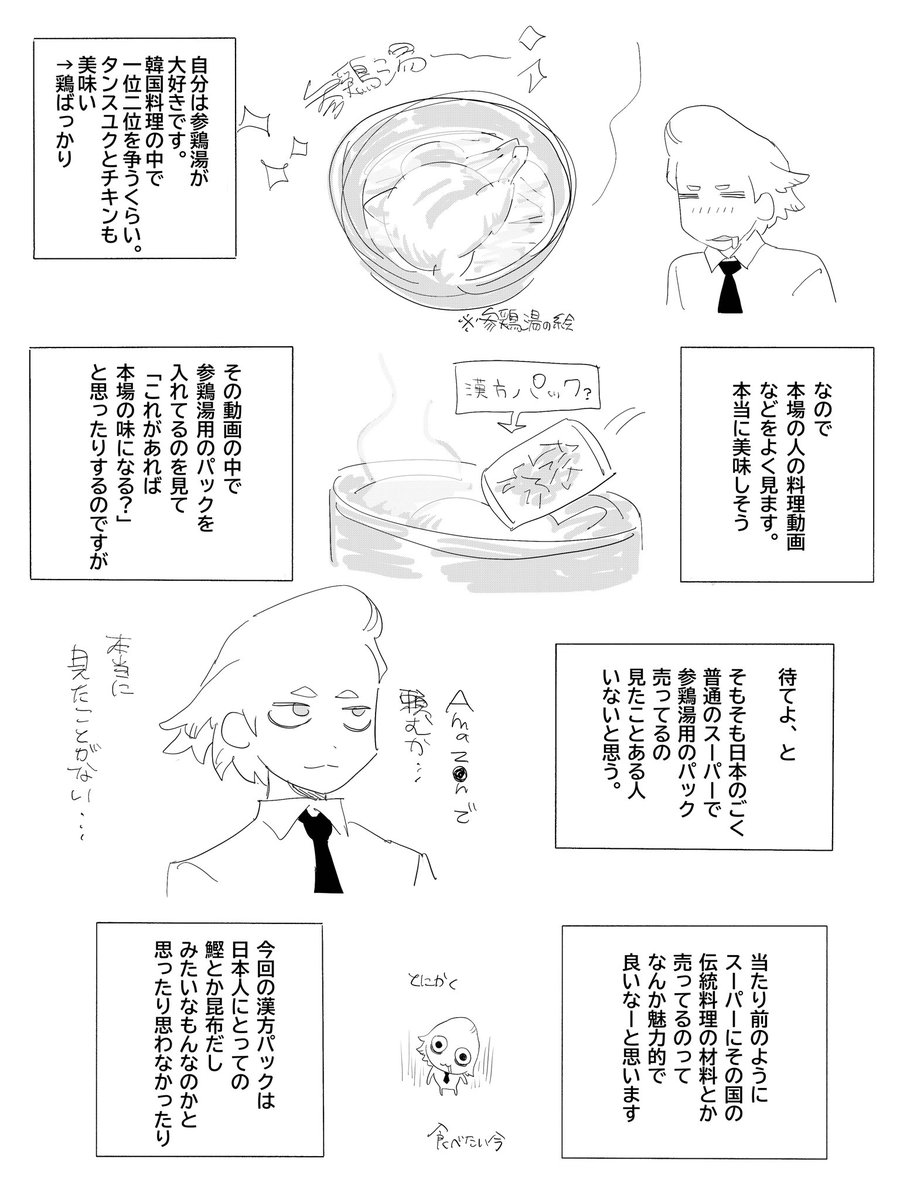 自分は参鶏湯が
大好きです。
韓国料理の中で
一位二位を争うくらい。
タンスユクとチキンも
美味い
→鶏ばっかり
参鶏湯
※参鶏湯の絵
なので
本場の人の料理動画
などをよく見ます。
本当に美味しそう
漢方パック?
その動画の中で
参鶏湯用のパックを
入れてるのを見て
「これがあれば
本場の味になる?」
と思ったりするのですが
待てよ、と
そもそも日本のごく
普通のスーパーで
参鶏湯用のパック
売ってるの
見たことある人
いないと思う。
Amazonで
頼むか…
本当に
見たことがない…
当たり前のように
スーパーにその国の
伝統料理の材料とか
売ってるのって
なんか魅力的で
良いなーと思います
とにかく
食べたい今
今回の漢方パックは
日本人にとっての
鰹とか昆布だし
みたいなもんなのかと
思ったり思わなかったり